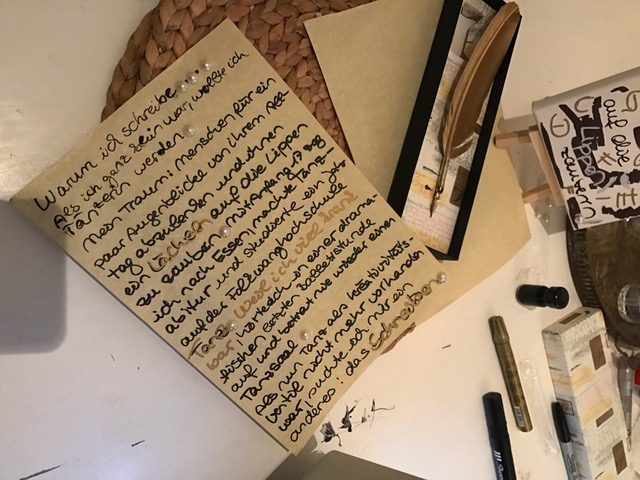 Warum ich schreibe...
Als ich ganz klein war, wollte ich
Tänzerin werden.
Mein Traum: Menschen für ein
paar Augenblicke von ihrem All-
tag abzulenken und ihnen
ein Lächeln auf die Lippen
zu zaubern. Mit Anfang 17 zog
ich nach Essen, machte Tanz-
abitur und studierte ein Jahr
auf der Folkwanghochschule
Tanz. Weil ich viel krank
war, hörte ich in einer drama-
tischen letzten Ballettstunde
auf und betrat nie wieder einen
Tanzsaal.
Als nun Tanz als Kreativitäts-
ventil nicht mehr vorhanden
war, suchte ich mir ein
anderes: das Schreiben
auf die
Lippen
zaubern